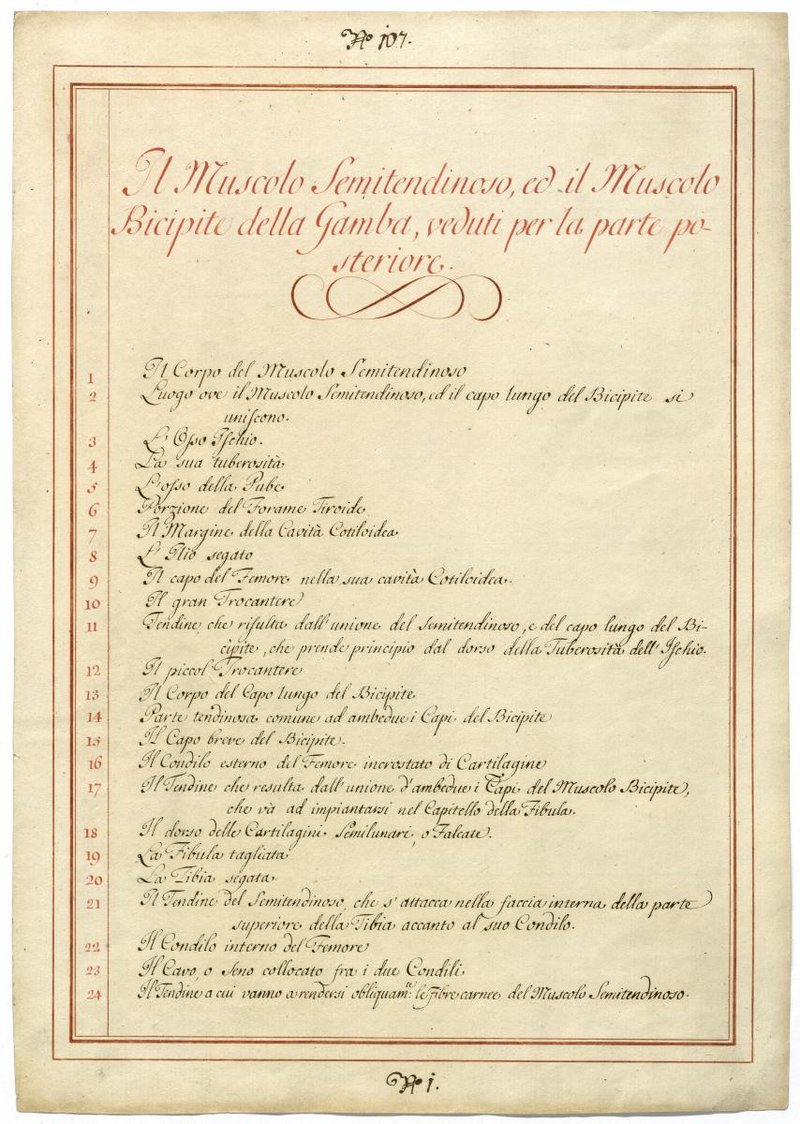 No 107.
Il Muscolo Semitendinoso, ed il Muscolo
Bicipite della Gamba, veduti per la parte po-
steriore.
1 Il Corpo del Muscolo Semitendinoso
2 Luogo ove il Muscolo Semitendinoso, ed il capo lungo del Bicipite si
uniſcono.
3 L'Oſso Iſchio.
4 La sua tuberosità
5 L'oſso della Pube
6 Porzione del Forame Tiroide
7 Il Margine della Cavità Cotiloidea
8 L'Ilio segato
9 Il capo del Femore nella sua cavità Cotiloidea.
10 Il gran Trocantere
11 Tendine che riſulta dall'unione del Semitendinoso, e del capo lungo del Bi-
cipite, che prende principio dal dorso della Tuberosità dell'Iſchio.
12 Il piccol Trocantere
13 Il Corpo del Capo lungo del Bicipite
14 Parte tendinosa comune ad ambedue i Capi del Bicipite
15 Il Capo breve del Bicipite.
16 Il Condilo esterno del Femore incrostato di Cartilagine
17 Il Tendine che resulta dall'unione d'ambedue i Capi del Muscolo Bicipite,
che và ad impiantarsi nel Capitello della Fibula.
18 Il dorso delle Cartilagini Semilunari, o Falcate.
19 La Fibula tagliata
20 La Tibia segata
21 Il Tendine del Semitendinoso, che s'attacca nella faccia interna della parte
superiore della Tibia accanto al suo Condilo.
22 Il Condilo interno del Femore
23 Il Cavo, o Seno collocato fra i due Condili
24 Il Tendine a cui vanno a rendersi obliquam.te le fibre carnee del Muscolo Semitendinoso.
No 1.